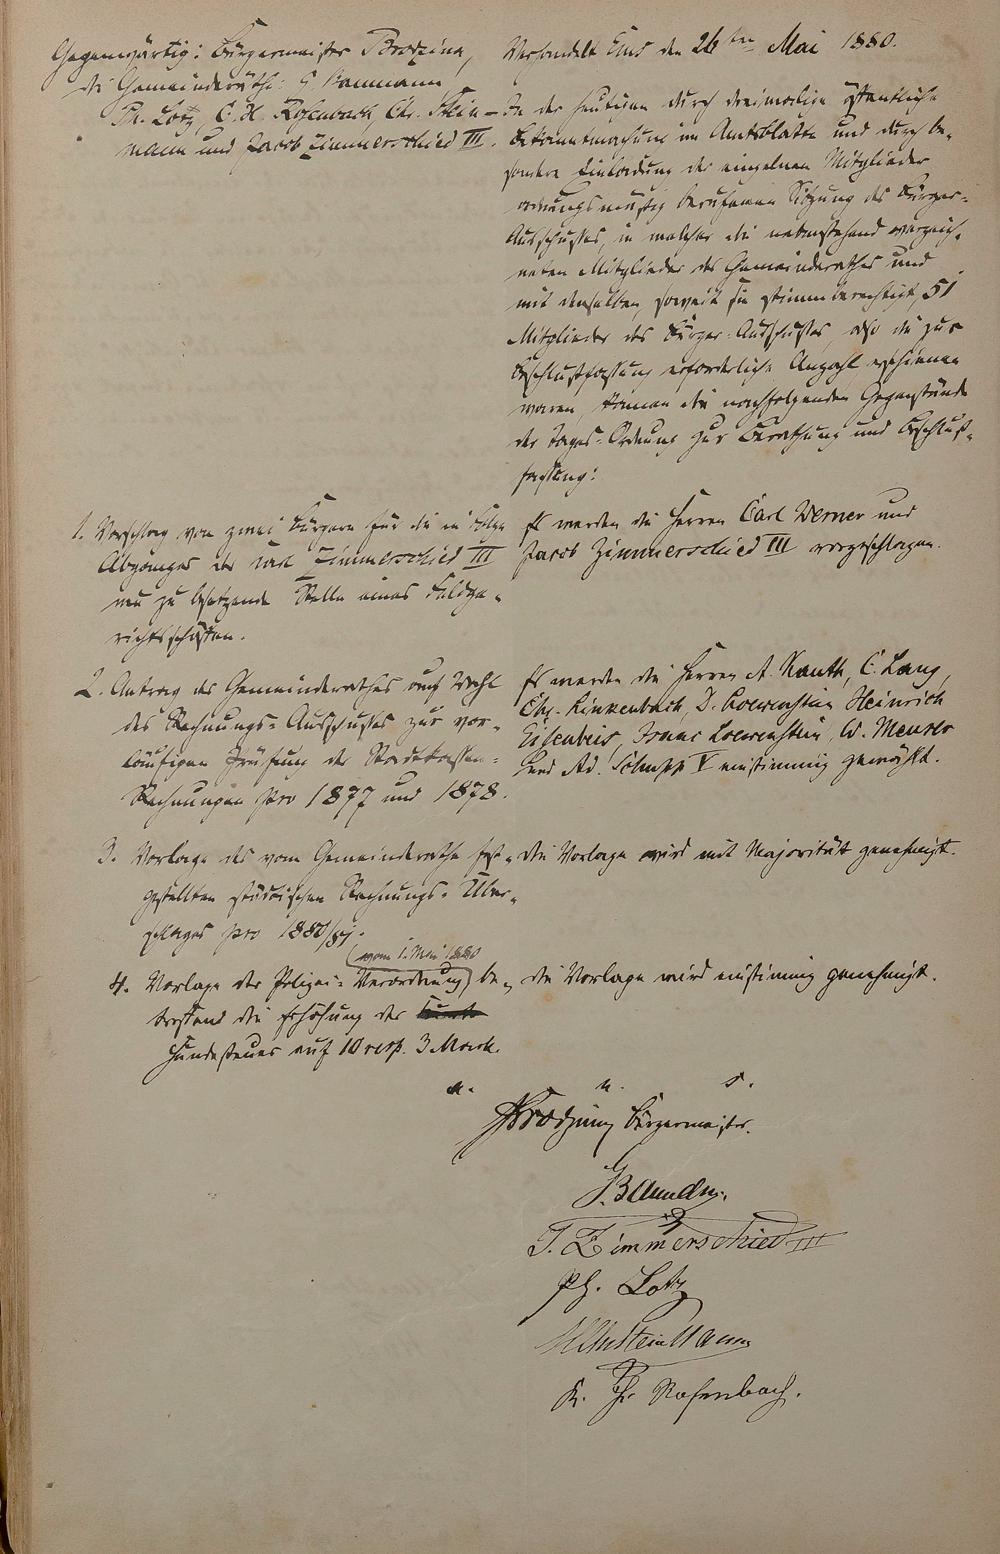 Gegenwärtig: Bürgermeister Brodzina,
die Gemeinderäthe: G. Baumann
Ph. Lotz, C. H. Rosenbach, Chr. Stein-
mann und Jacob Zimmerschied III.
Verhandelt Ems den 26ten Mai 1880.
In der heutigen durch dreimalige öffentliche
Bekanntmachung im Amtsblatte und durch be-
sondere Einladung der einzelnen Mitglieder
ordnungsmäßig berufenen Sitzung des Bürger-
Ausschusses, in welcher die nebenstehend verzeich-
neten Mitglieder des Gemeinderathes und
mit denselben, soweit sie stimmberechtigt, 51
Mitglieder des Bürger-Ausschusses, also die zur
Beschlußfassung erforderliche Anzahl erschienen
waren, kamen die nachfolgenden Gegenstände
der Tages-Ordnung zur Berathung und Beschluß-
fassung:
1. Vorschlag von zwei Bürgern für die in Folge
Abganges des Zimmerschied III
neu zu besetzende Stelle eines Feldge-
richtsschöffen.
Es werden die Herren Carl Werner und
Jacob Zimmerschied III vorgeschlagen.
2. Antrag des Gemeinderathes auf Wahl
des Rechnungs-Ausschusses zur vor-
läufigen Prüfung der Stadtkassen-
Rechnungen pro 1877 und 1878.
Es werden die Herren A. Kauth, C. Lang,
Chr. Linkenbach, D. Loewenstein Heinrich
Eisenbeis, Franz Loewenstein, W. Meurer
und Ad. Schupp V einstimmig gewählt.
3. Vorlage des vom Gemeinderathe fest-
gestellten städtischen Rechnungs-Über-
schlages pro 1880/81.
die Vorlage wird mit Majorität genehmigt.
4. Vorlage der Polizei-Verordnung be-
(vom 1. Mai 1880
treffend die Erhöhung der
Hundesteuer auf 10 resp. 3 Mark.
die Vorlage wird einstimmig genehmigt.
a. u. s.
Brodzina Bürgermeister.
G. Baumann.
J. Zimmerschied III
Ph. Lotz
Chr Steinmann
K. H. Rosenbach.